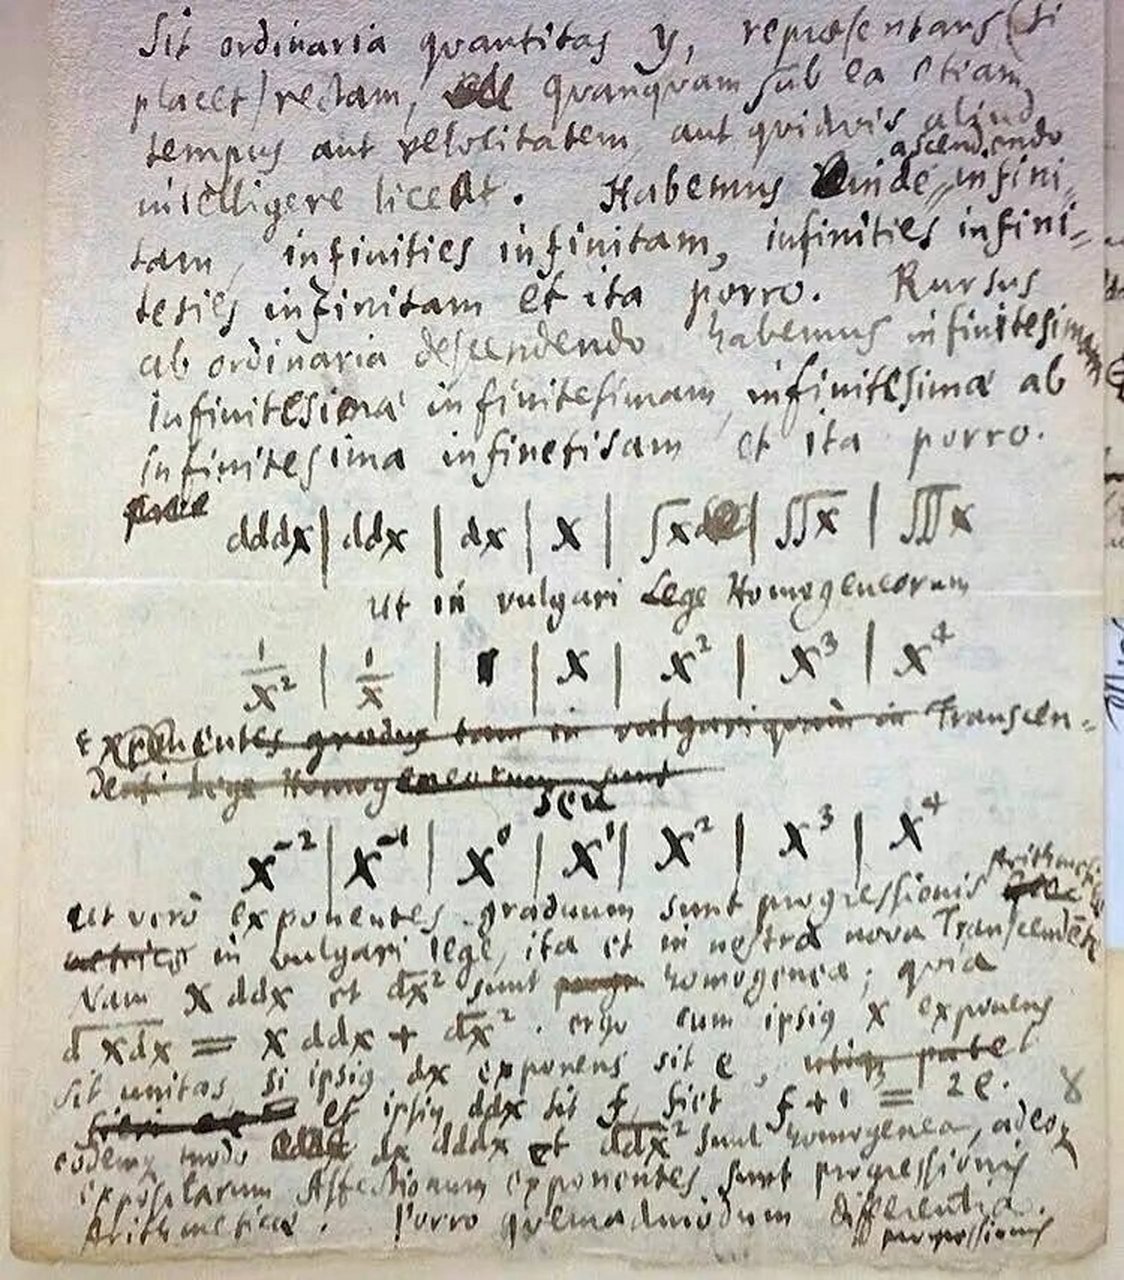 Sit ordinaria quantitas y, repræsentans (si
placet) rectam, quanquam sub ea etiam
tempus aut velocitatem aut quidvis aliud
ascendendo
intelligere liceat. Habemus inde infini-
tam, infinities infinitam, infinities infini-
ties infinitam et ita porro. Rursus
ab ordinaria descendendo habemus infinitesimam
infinitesima infinitesimam, infinitesima ab
infinitesima infinetisam et ita porro.
dddx | ddx | dx | x | ∫x | ∫∫x | ∫∫∫x
ut in vulgari Lege Homogeneorum
1/x² | 1/x | 1 | x | x² | x³ | x⁴
Exponentes gradus tam in vulgari quam in Transcen-
denti Lege Homogeneorum sunt
seu
x⁻² | x⁻¹ | x⁰ | x¹ | x² | x³ | x⁴
Arithmeticæ
ut vero exponentes graduum sunt progressionis
in vulgari lege, ita et in nostra nova Transcendente
Nam x ddx et dx² sunt homogenea; quia
d xdx = x ddx + dx². ergo cum ipsius x exponens
sit unitas, si ipsius dx exponens sit e,
et ipsius ddx sit f, fiet f + 1 = 2e. 8
eodemq modo dx dddx et ddx² sunt homogenea, adeoq
expositarum Affectionum exponentes sunt progressionis
Arithmeticæ. Porro quemadmodum differentia
progressionis